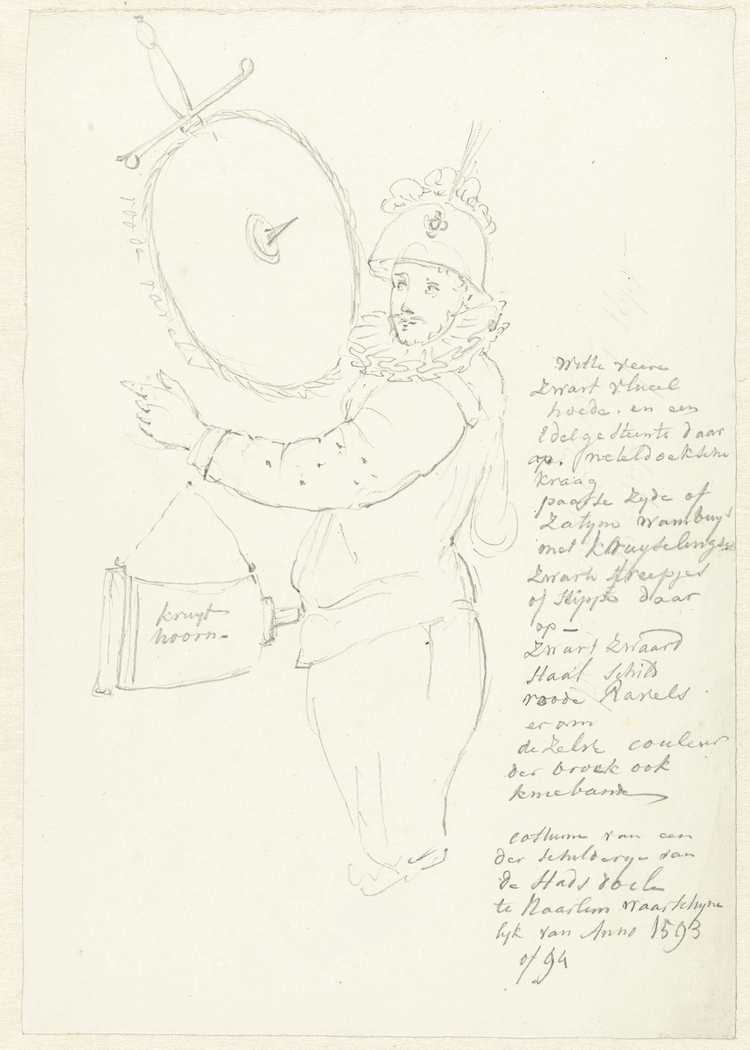 roode ravels
kruyt
hoorn-
Witte veere
Zwart vlueel
hoede. en een
Edelgesteente daar
op. neteldoeksche
kraag
paarse Zyde of
Zatyn wambuys
met kruyselings
Zwarte streepjes
of stipps daar
op-
Zwart Zwaard
Staal schild
roode Ravels
er om
de Zelve couleur
der broek ook
kniebande
costume van een
der schilderye van
de Stads doele
te Haarlem waarschyne
lyk van Anno 1593
of 94